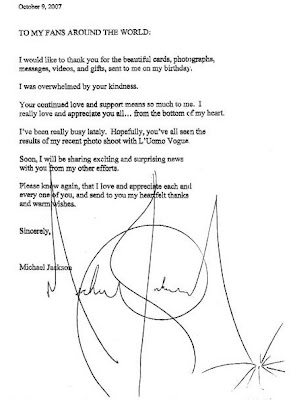 October 9, 2007
TO MY FANS AROUND THE WORLD:
I would like to thank you for the beautiful cards, photographs,
messages, videos, and gifts, sent to me on my birthday.
I was overwhelmed by your kindness.
Your continued love and support means so much to me. I
really love and appreciate you all... from the bottom of my heart.
I've been really busy lately. Hopefully, you've all seen the
results of my recent photo shoot with L'Uomo Vogue.
Soon, I will be sharing exciting and surprising news
with you from my other efforts.
Please know again, that I love and appreciate each and
every one of you, and send to you my heartfelt thanks
and warm wishes.
Sincerely,
Michael Jackson